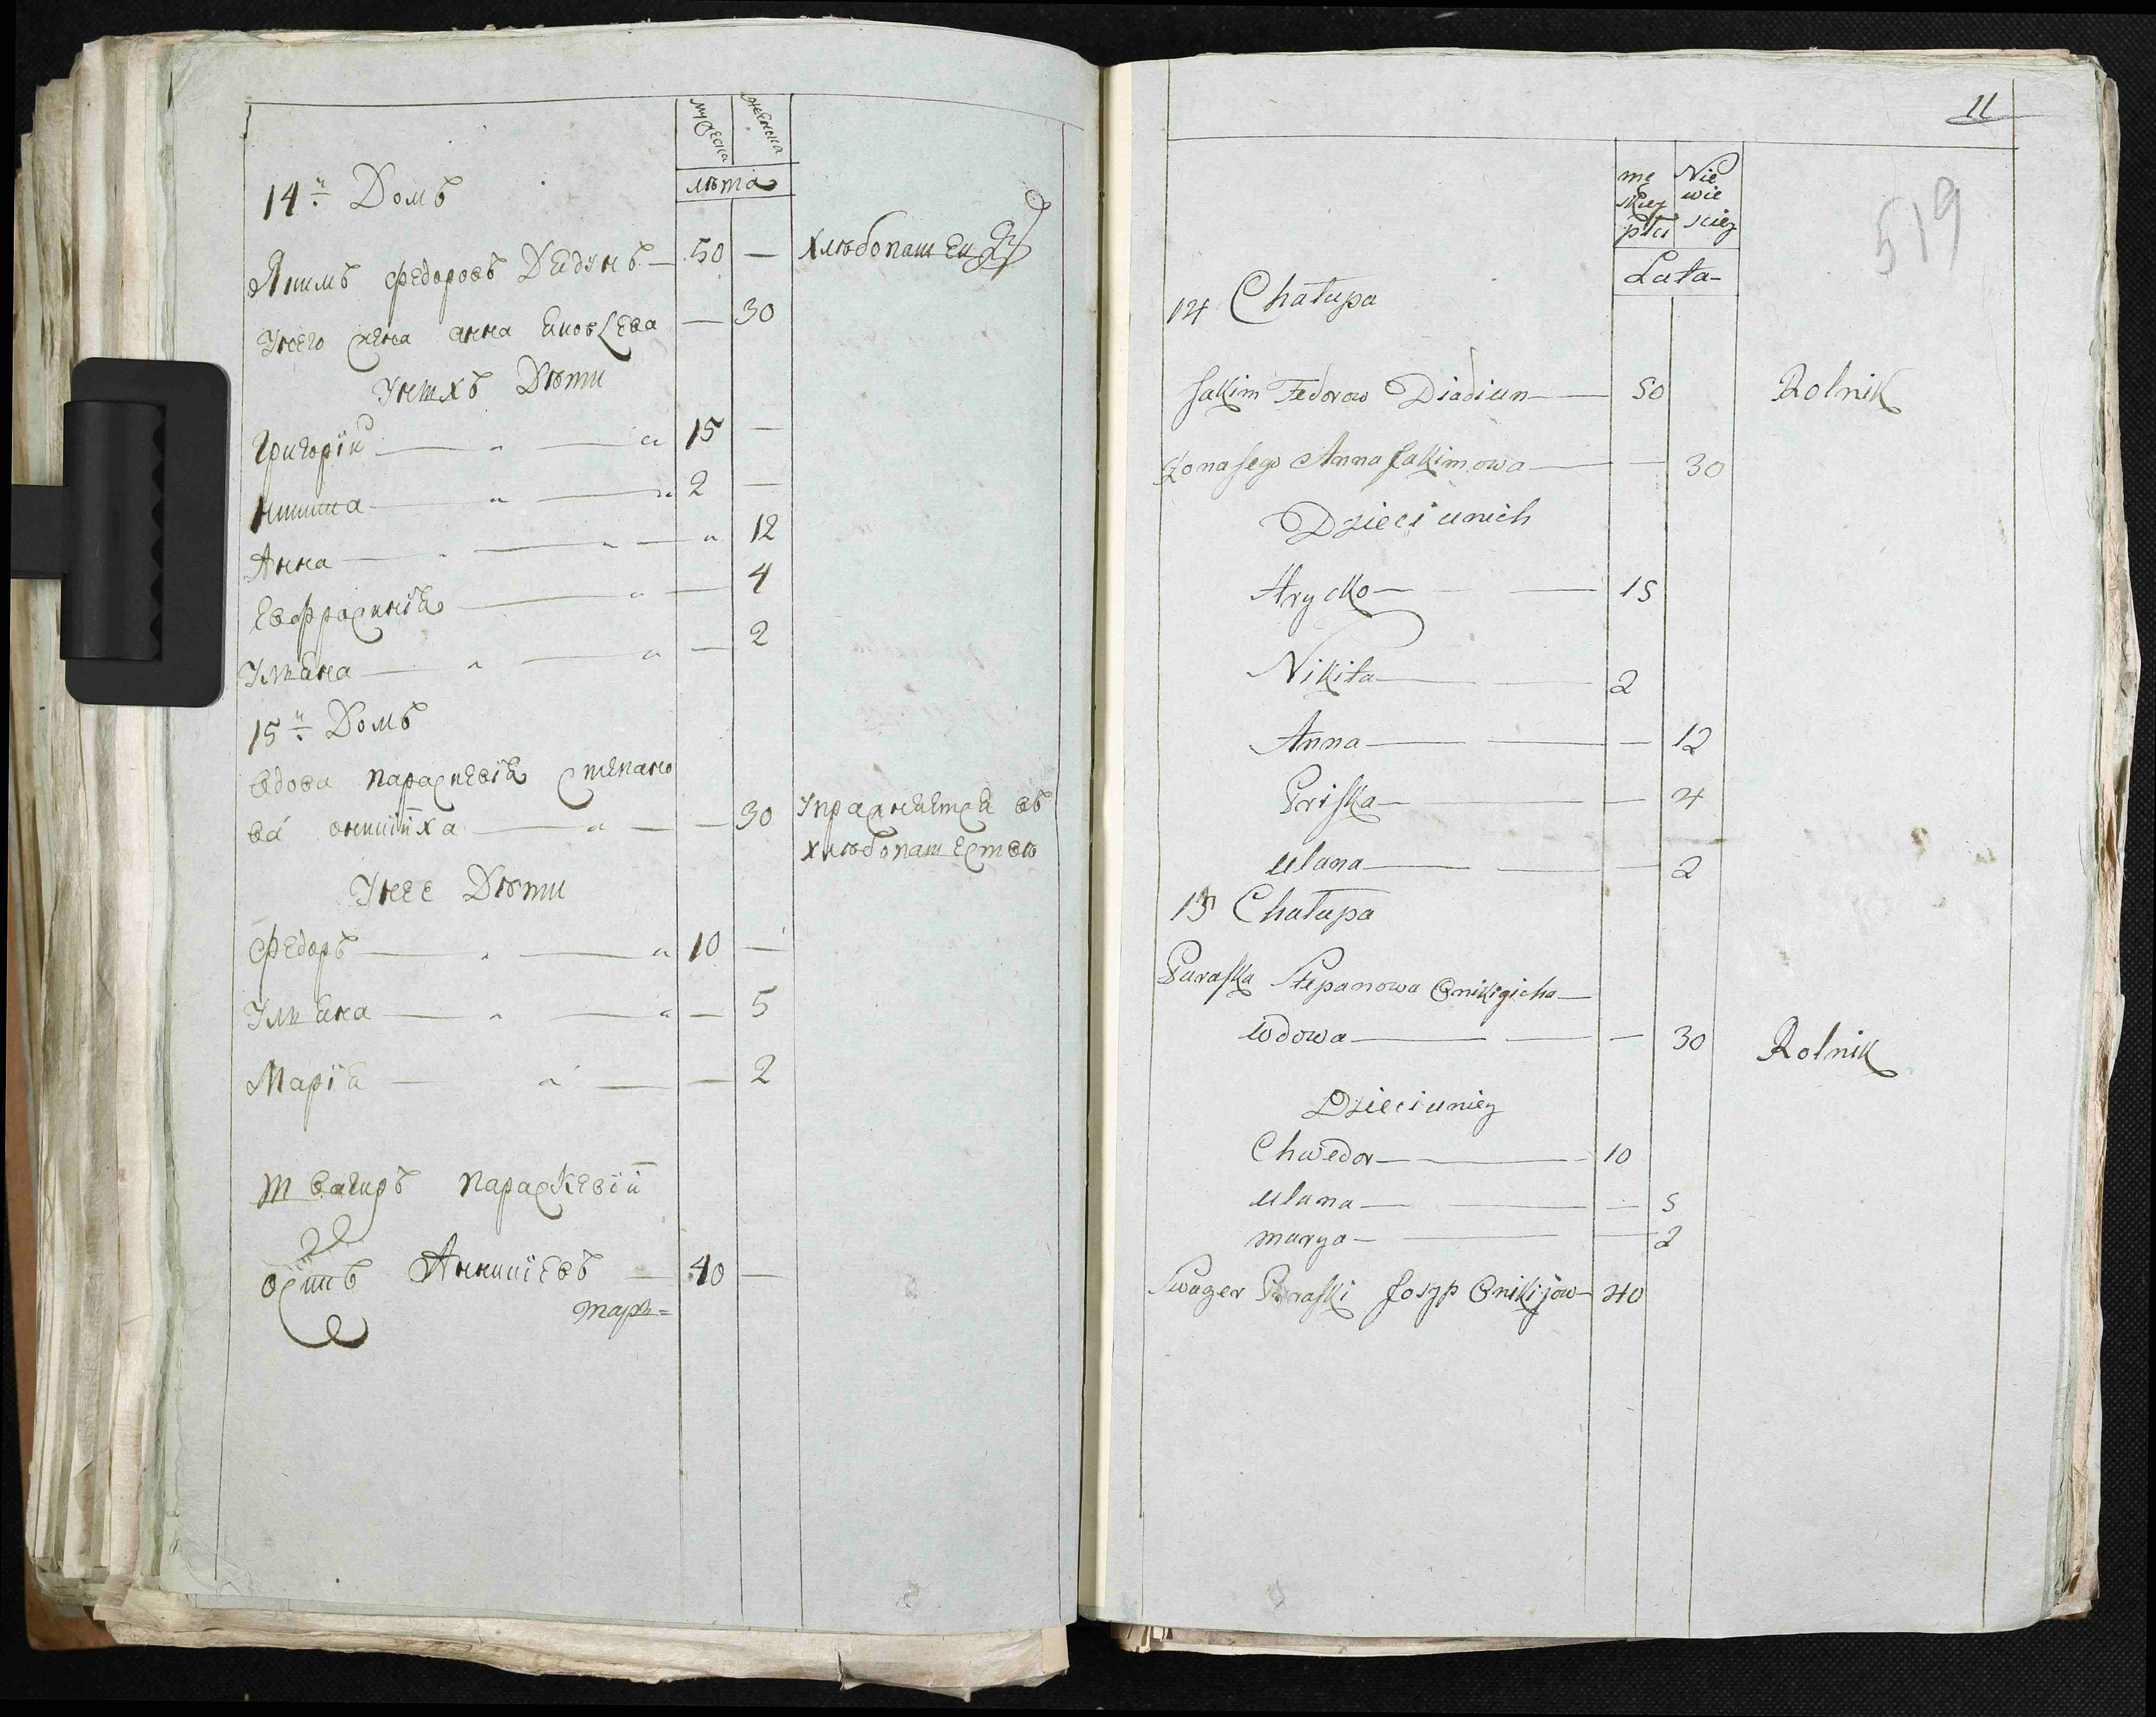 мужеска женска
лѣта
14й Домъ
Якимъ Федоровъ Дядунъ 50 — Хлѣбопашец
Унего жена анна Яковлева — 30
Унихъ Дѣти
Григорій 15 —
никита 2 —
Анна " 12
Евфросинія — 4
Ульяна — 2
15й Домъ
вдова параскевія Степано
ва оникіиха — 30 Упражняется въ
хлѣбопашествѣ
Унее Дѣти
Федоръ 10 —
Ульяна — 5
Марія — 2
Швагиръ параскевіи
Осипъ Аникіевъ — 40 —
11
519
mę skiey płci Nie wie sciey
Lata
14 Chałupa
Jakim Fedorow Diadiun — 50 Rolnik
Żona jego Anna Jakimowa — 30
Dzieci unich
Hrycko — 15
Nikita — 2
Anna — 12
Priska — 4
Ulana — 2
15 Chałupa
Paraska Stepanowa Onikiicha —
wdowa — 30 Rolnik
Dzieci uniey
Chwedor — 10
Ulana — 5
marya — 2
Swager Paraski Josyp Onikijow 40